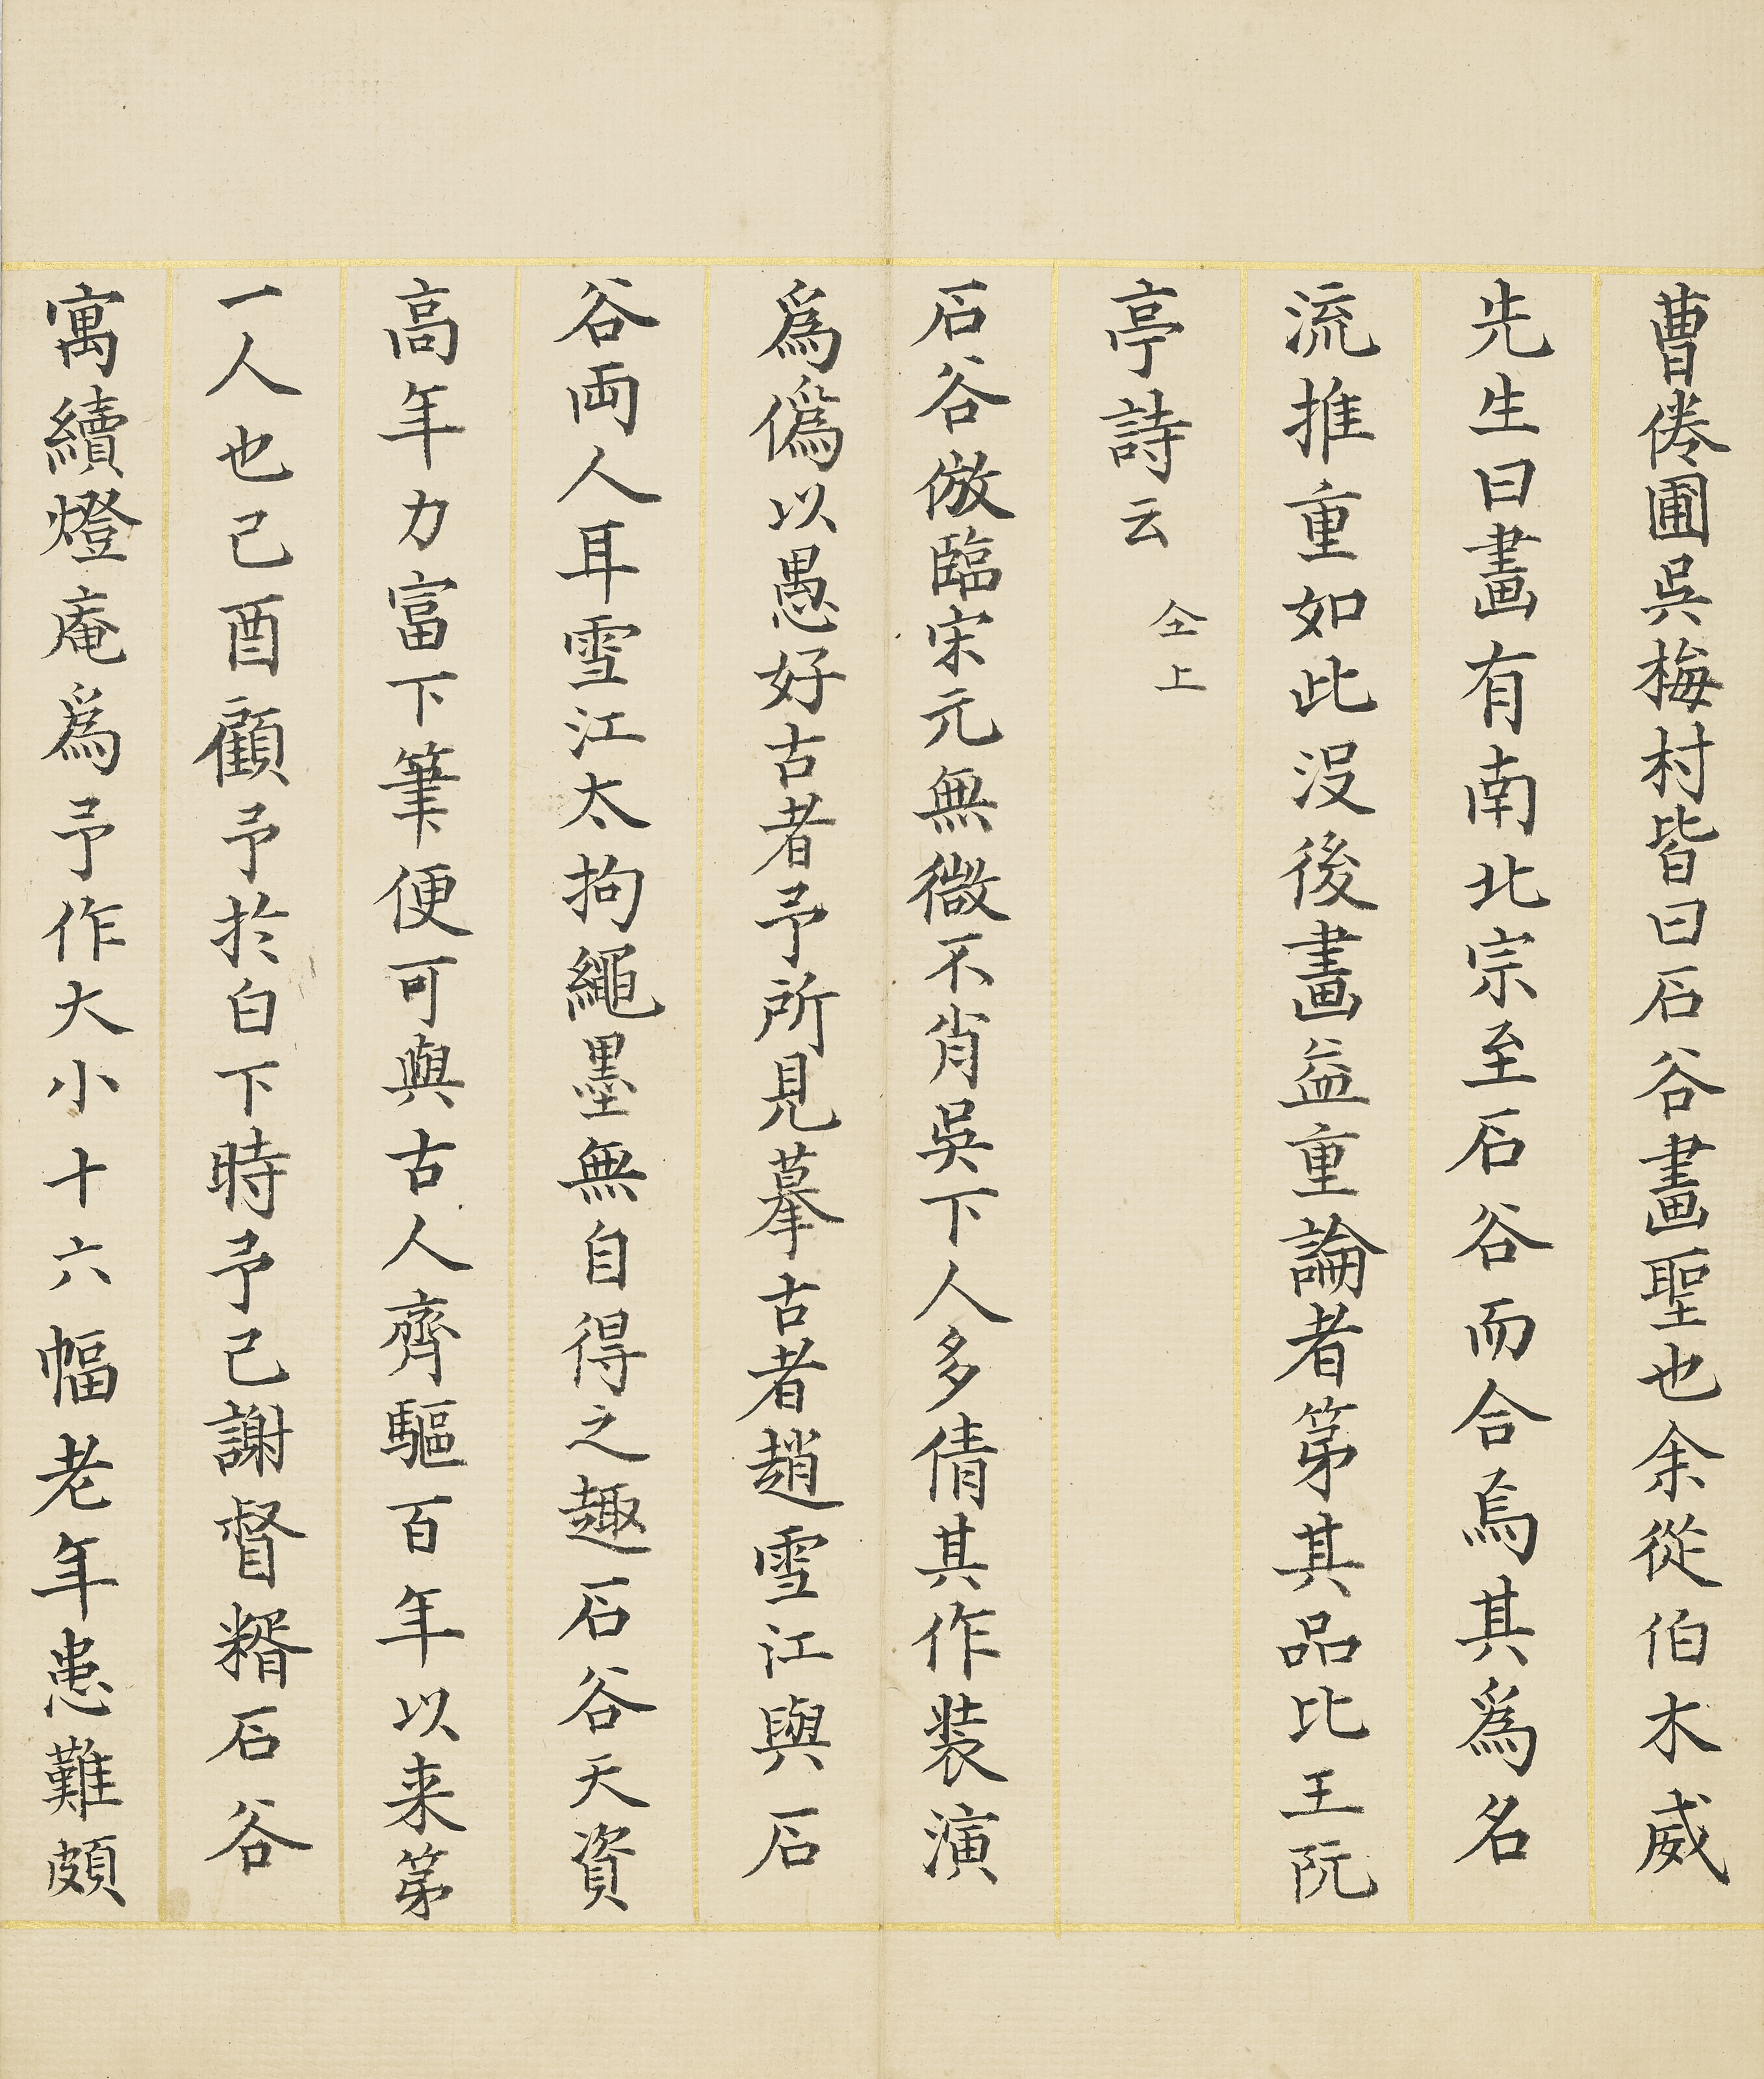 曹倦圃吳梅村皆曰石谷畫聖也余從伯木威
先生曰畫有南北宗至石谷而合焉其為名
流推重如此沒後畫益重論者第其品比王阮
亭詩云 仝上
石谷倣臨宋元無微不肖吳下人多倩其作裝潢
為偽以愚好古者予所見摹古者趙雪江與石
谷両人耳雪江太拘繩墨無自得之趣石谷天資
高年力富下筆便可與古人齊驅百年以来第
一人也己酉顧予於白下時予已謝督糈石谷
寓續燈庵為予作大小十六幅老年患難頗